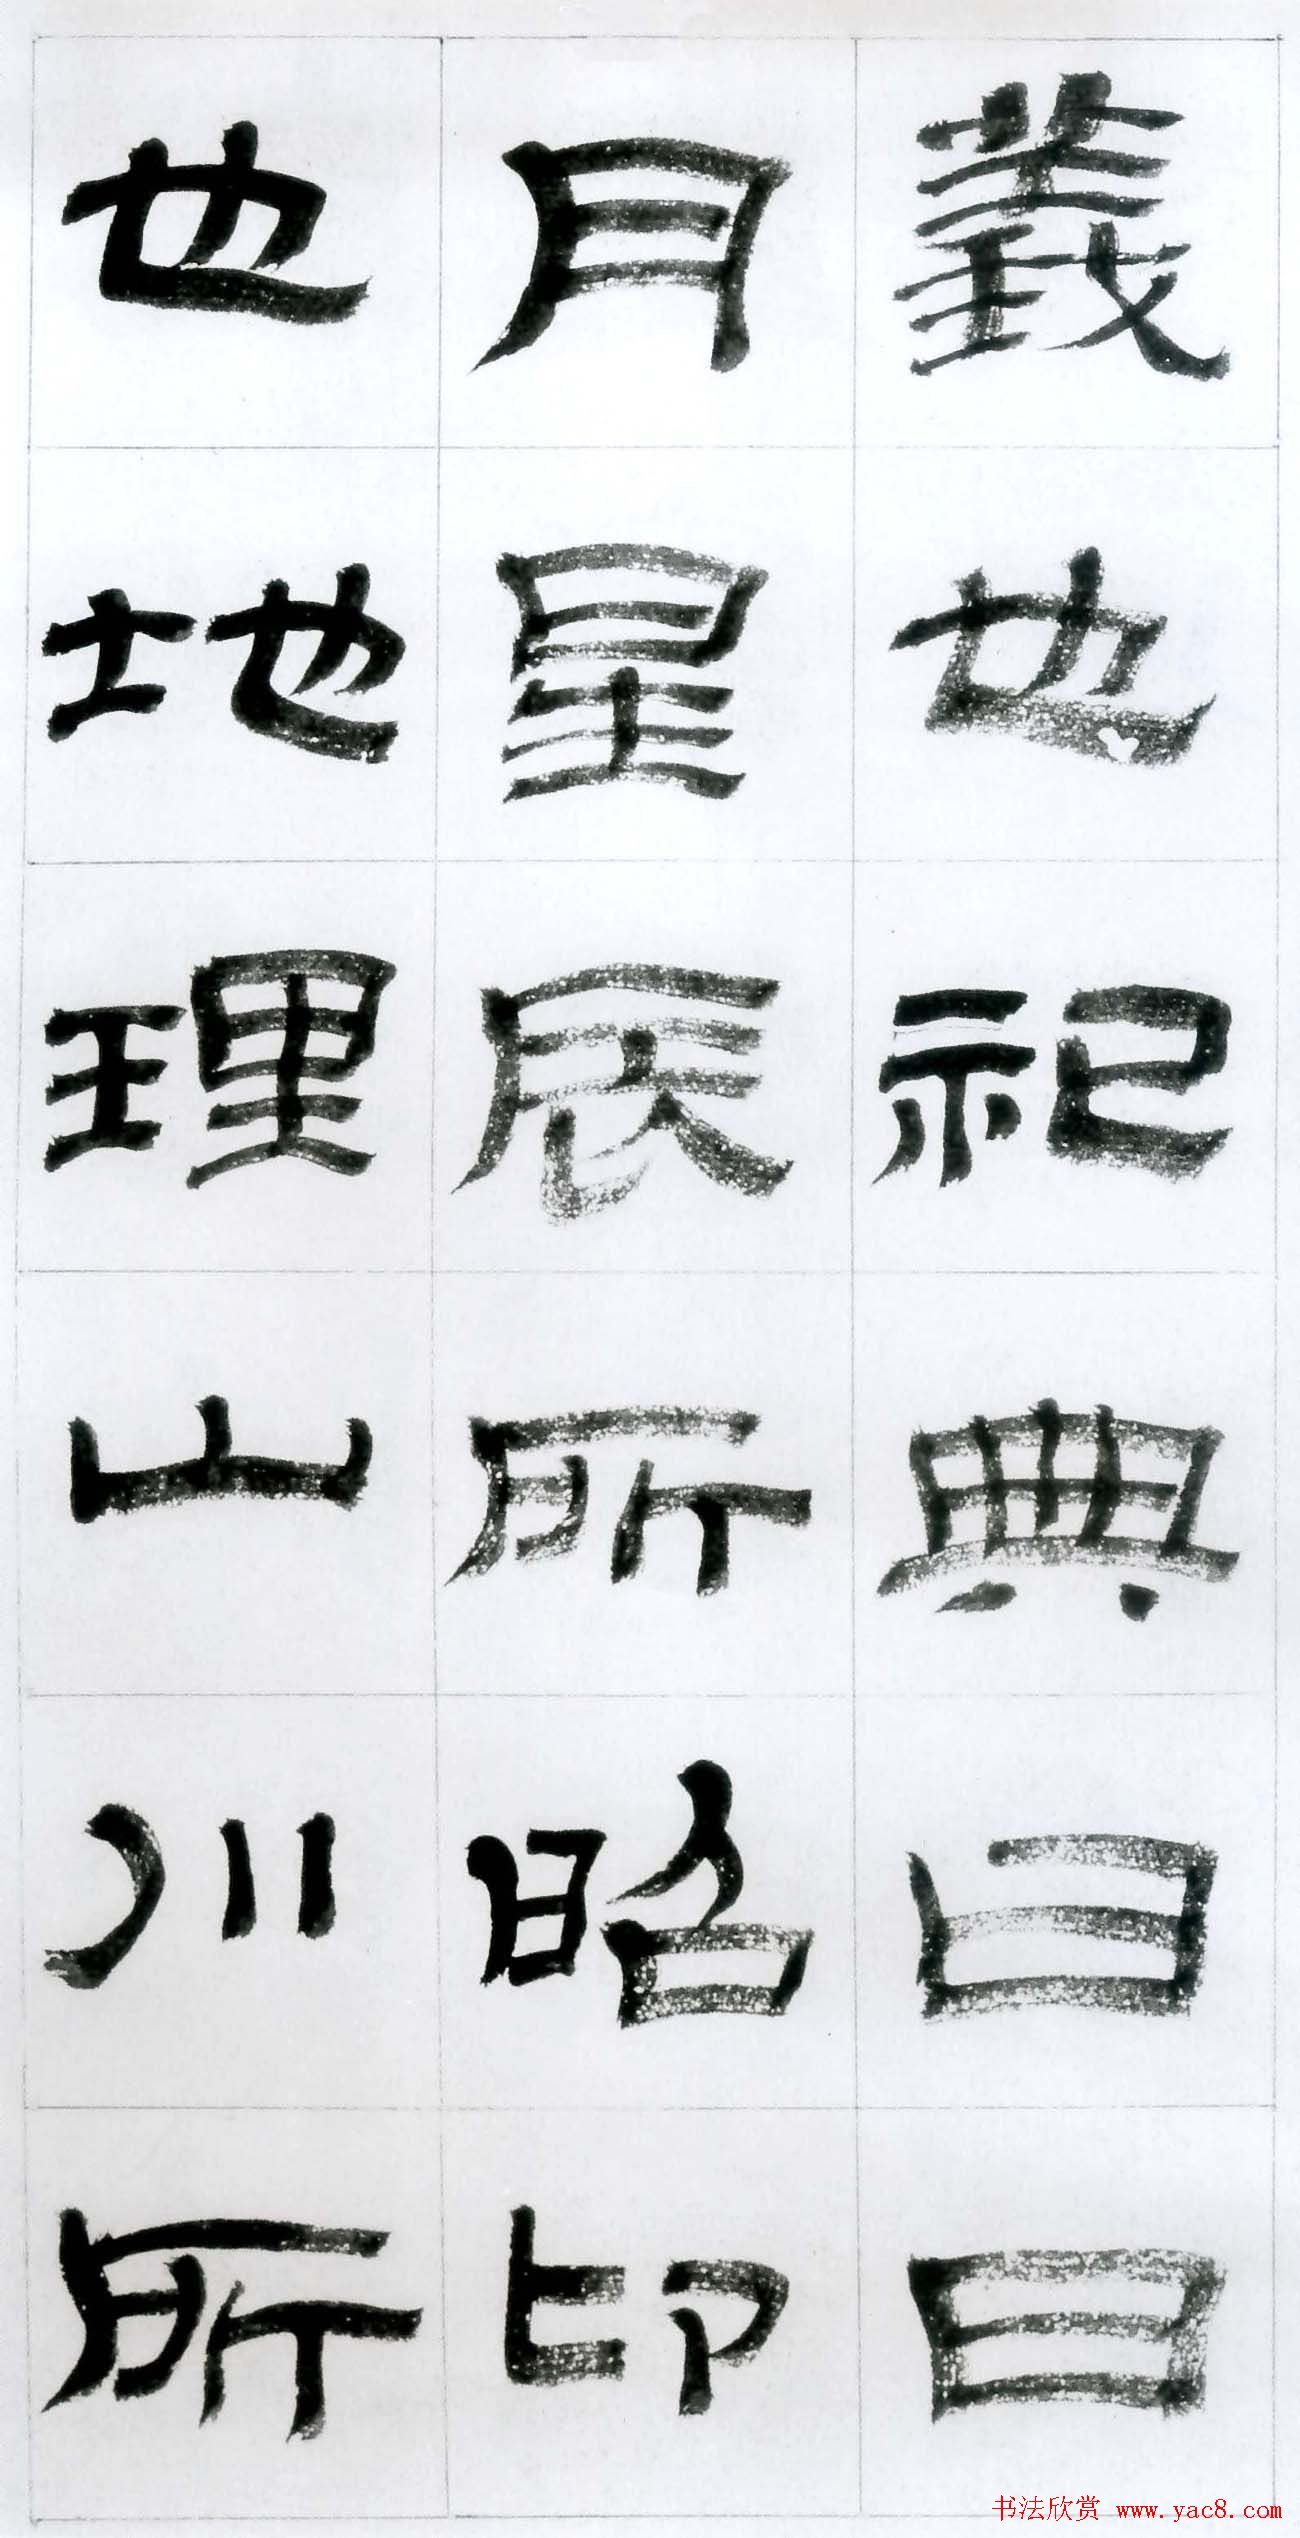 義也祀典曰日
月星辰所昭卬
也地理山川所
书法欣赏 www.yac8.com